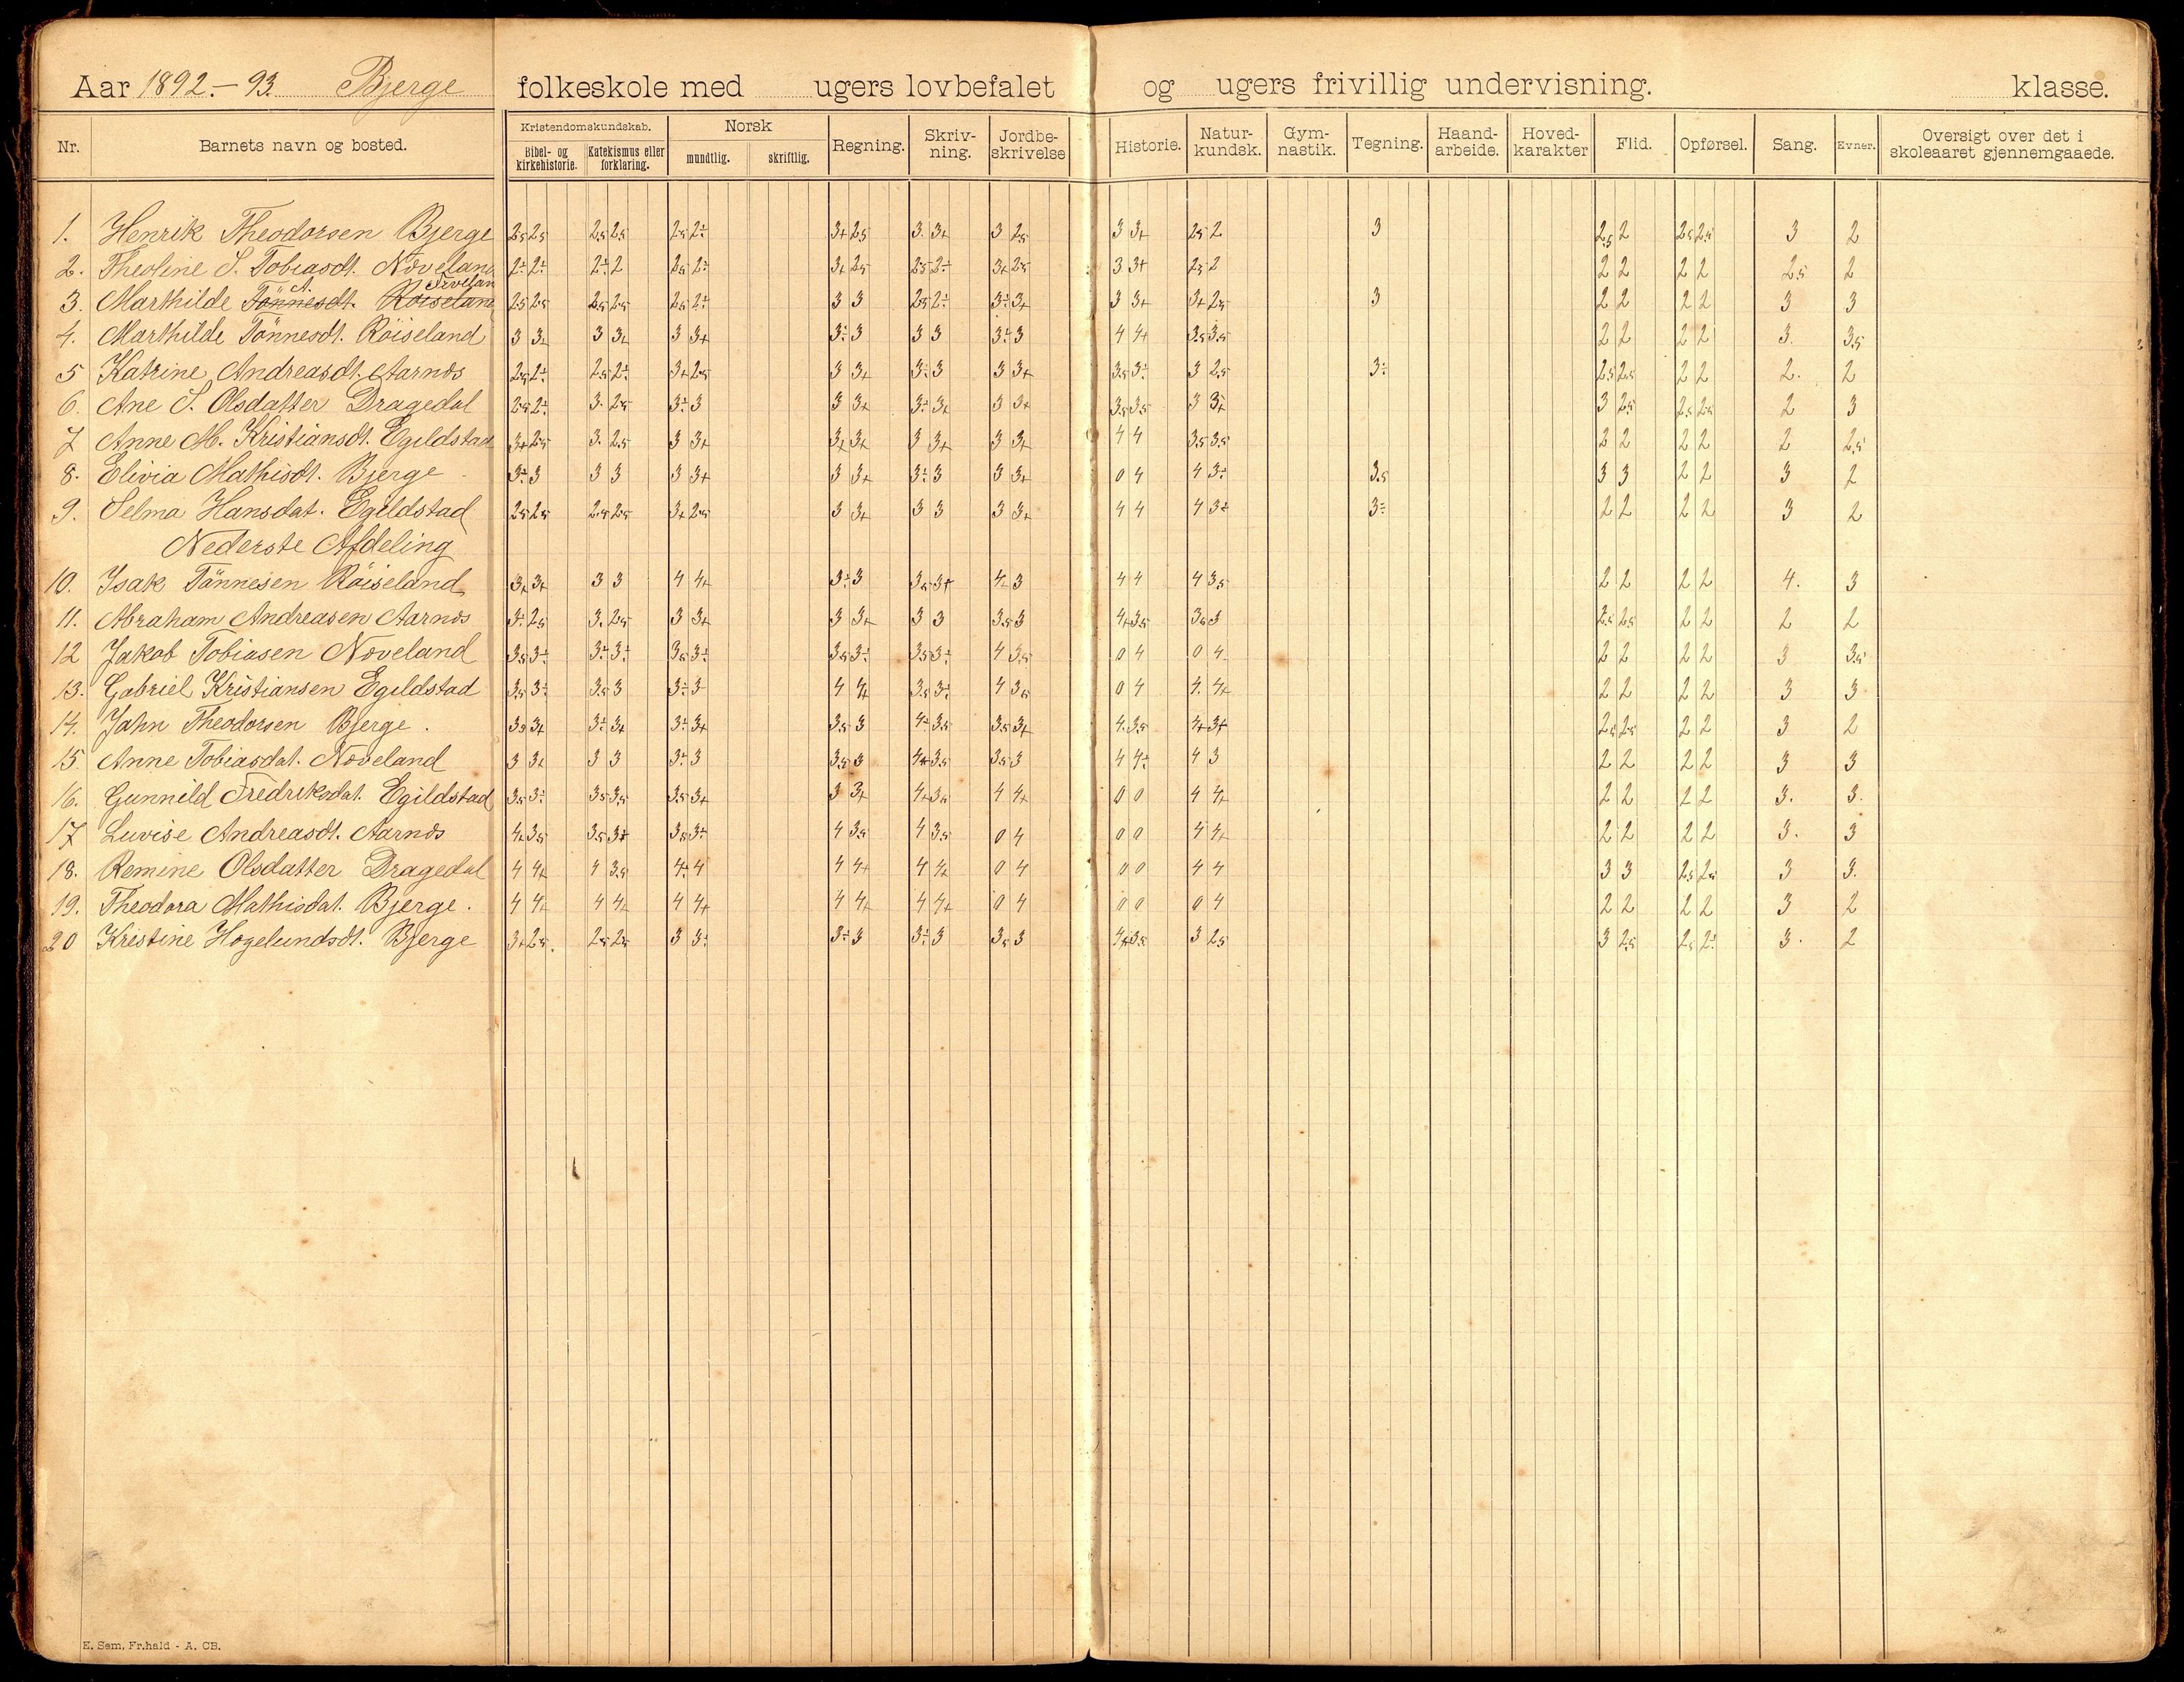 Aar 1892.-93. Bjerge folkeskole med ugers lovbefalet og ugers frivillig undervisning. klasse.
Nr. Barnets navn og bosted. Kristendomskundskab. Bibel- og kirkehistorie. Katekismus eller forklaring. Norsk mundtlig. skriftlig. Regning. Skriv-ning. Jordbe-skrivelse Historie. Natur-kundsk. Gym-nastik. Tegning. Haand-arbeide. Hoved-karakter Flid. Opførsel. Sang. Evner. Oversigt over det i skoleaaret gjennemgaaede.
1. Henrik Theodorsen Bjerge 2.5 2.5 2.5 2.5 2.5 2÷ 3+ 2.5 3. 3+ 3 2.5 3 3+ 2.5 2 3 2.5 2 2.5 2.5 3 2
2. Theoline S. Tobiasdt. Növeland 2÷ 2÷ 2÷ 2 2.5 2÷ 3+ 2.5 2.5 2÷ 3+ 2.5 3 3+ 2.5 2 2 2 2 2 2.5 2
3. Marthilde Tönnesdt. A. Röiseland 2.5 2.5 2.5 2.5 2.5 2÷ 3 3 2.5 2÷ 3÷ 3+ 3 3+ 3+ 2.5 3 2 2 2 2 3 3
4. Marthilde Tönnesdt. Röiseland 3 3+ 3 3+ 3 3+ 3÷ 3 3 3 3÷ 3 4 4+ 3.5 3.5 2 2 2 2 3. 3.5
5 Katrine Andreasdt. Aarnös 2.5 2÷ 2.5 2÷ 3+ 2.5 3 3+ 3÷ 3 3 3+ 3.5 3÷ 3 2.5 3÷ 2.5 2.5 2 2 2. 2
6. Ane S. Olsdatter Dragedal 2.5 2÷ 3. 2.5 3÷ 3 3 3+ 3÷ 3+ 3 3+ 3.5 3.5 3 3+ 3 2.5 2.5 2.5 2 3
7 Anne M. Kristiansdt. Egildstad 3+ 2.5 3. 2.5 3 3+ 3+ 3+ 3 3+ 3 3+ 4 4 3.5 3.5 2 2 2 2 2 2.5
8. Elivia Mathisdt. Bjerge 3÷ 3 3 3 3 3+ 3 3+ 3÷ 3 3 3+ 0 4 4 3÷ 3.5 3 3 2 2 3 2
9. Selma Hansdat. Egildstad 2.5 2.5 2.5 2.5 3+ 2.5 3 3+ 3 3 3 3+ 4 4 4 3÷ 3÷ 2 2 2 2 3 2
Nederste Afdeling
10. Isak Tönnesen Röiseland 3+ 3+ 3 3 4 4+ 3÷ 3 3.5 3+ 4÷ 3 4 4 4 3.5 2 2 2 2 4. 3
11. Abraham Andreasen Aarnös 3÷ 2.5 3. 2.5 3 3+ 3 3+ 3 3 3.5 3 4+ 3.5 3.5 3 2.5 2.5 2 2 2 2
12 Jakob Tobiasen Növeland 3.5 3÷ 3÷ 3÷ 3.5 3÷ 3.5 3÷ 3.5 3÷ 4 3.5 0 4 0 4. 2 2 2 2 3 3.5
13. Gabriel Kristiansen Egildstad 3.5 3÷ 3.5 3 3÷ 3 4 4+ 3.5 3÷ 4 3.5 0 4 4. 4+ 2 2 2 2 3 3
14. Jahn Theodorsen Bjerge. 3.5 3+ 3÷ 3+ 3÷ 3+ 3.5 3 4÷ 3.5 3.5 3+ 4. 3.5 4+ 3+ 2.5 2.5 2 2 3 2
15. Anne Tobiasdat. Növeland 3 3+ 3 3 3÷ 3 3.5 3 4+ 3.5 3.5 3 4 4÷ 4 3 2 2 2 2 3 3
16. Gunnild Fredriksdat. Egildstad 3.5 3÷ 3.5 3.5 3.5 3+ 3 3+ 4+ 3.5 4 4+ 0 0 4 4+ 2 2 2 2 3. 3.
17 Luvise Andreasdt. Aarnös 4+ 3.5 3.5 3+ 3.5 3÷ 4 3.5 4 3.5 0 4 0 0 4 4+ 2 2 2 2 3. 3
18. Remine Olsdatter Dragedal 4 4+ 4 3.5 4÷ 4 4 4+ 4 4+ 0 4 0 0 4 4 3 3 2.5 2.5 3 3.
19. Theodora Mathisdat. Bjerge. 4 4+ 4 4+ 4 4+ 4 4+ 4 4+ 0 4 0 0 0 4 2 2 2 2 3 2
20 Kristine Högelundsdt. Bjerge 3+ 2.5. 2.5 2.5 3 3÷ 3÷ 3 3÷ 3 3.5 3 4+ 3.5 3 2.5 3 2.5 2.5 2÷ 3. 2
E. Sem, Fr.hald - A. CB.